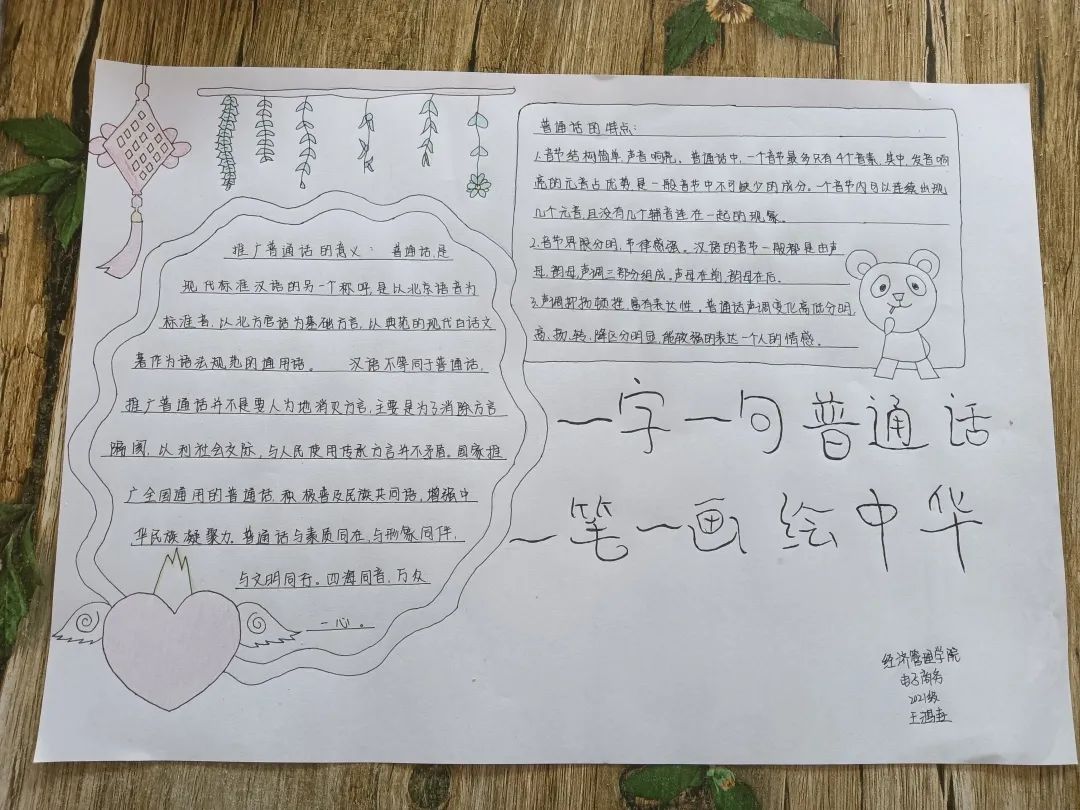 推广普通话的意义： 普通话,是
现代标准汉语的另一个称呼,是以北京语音为
标准音,以北方官话为基础方言,以典范的现代白话文
著作为语法规范的通用语。 汉语不等同于普通话,
推广普通话并不是要人为地消灭方言,主要是为了消除方言
隔阂,以利社会交际,与人民使用传承方言并不矛盾。国家推
广全国通用的普通话 积极普及民族共同语,增强中
华民族凝聚力.普通话与素质同在,与形象同伴,
与文明同行。四海同音,万众
一心。
普通话的特点：
1.音节结构简单,声音响亮。普通话中,一个音节最多只有4个音素,其中,发音响
亮的元音占优势,是一般音节中不可缺少的成分。一个音节内可以连续出现
几个元音,且没有几个辅音连在一起的现象。
2.音节界限分明,节律感强。汉语的音节一般都是由声
母,韵母,声调三部分组成,声母在前,韵母在后。
3.声调抑扬顿挫,富有表达性。普通话声调变化高低分明,
高、扬、转、降区分明显,能较强的表达一个人的情感。
一字一句普通话
一笔一画绘中华
经济管理学院
电子商务
2021级